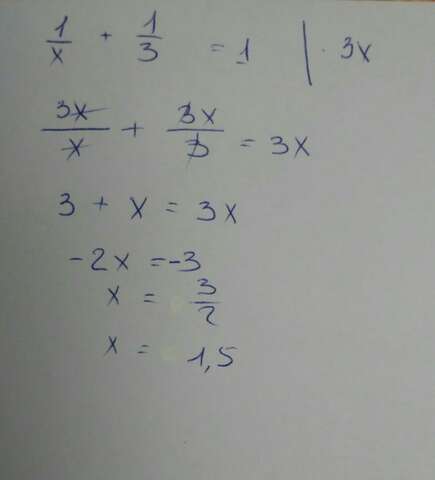 1/x + 1/3 = 1 | · 3x
3x/x + 3x/3 = 3x
3 + x = 3x
-2x = -3
x = 3/2
x = 1,5